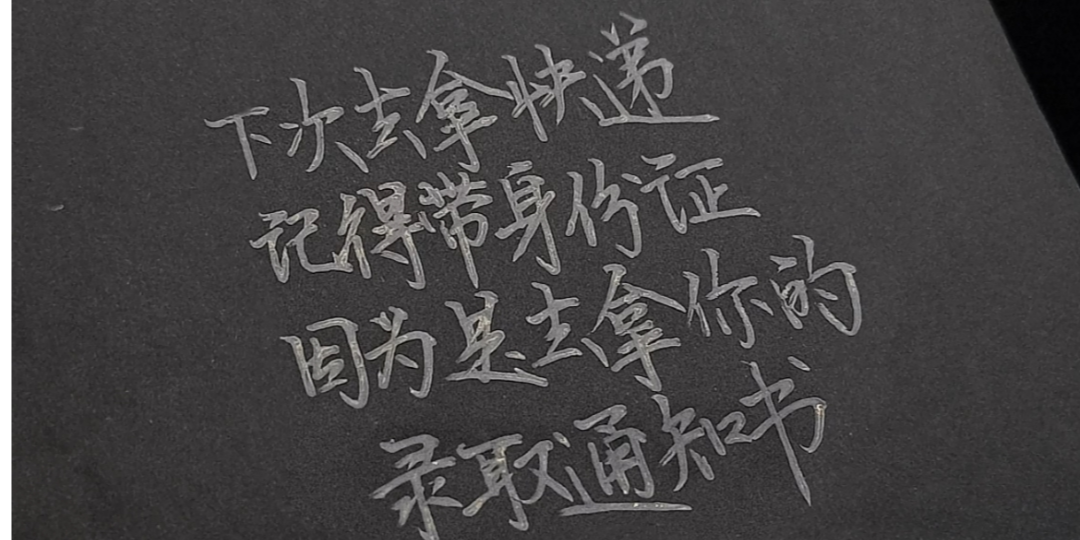 下次去拿快递
记得带身份证
因为是去拿你的
录取通知书